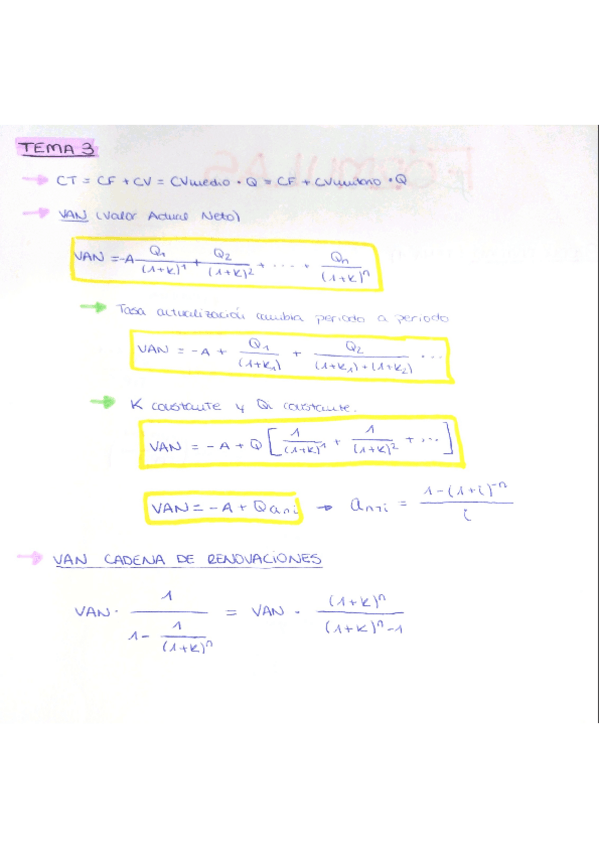 FORMULAS
TEMA 3
→ CT = CF + CV = CVmedio • Q = CF + CVunitario • Q
→ VAN (Valor Actual Neto)
VAN = -A \frac{Q_1}{(1+K)^1} + \frac{Q_2}{(1+K)^2} + .... + \frac{Q_n}{(1+K)^n}
→ Tasa actualización cambia periodo a periodo
VAN = -A + \frac{Q_1}{(1+K_1)} + \frac{Q_2}{(1+K_1) • (1+K_2)} ...
→ K constante y Q constante.
VAN = -A + Q [ \frac{1}{(1+K)^1} + \frac{1}{(1+K)^2} + ... ]
VAN = -A + Q a_{n¬i} → a_{n¬i} = \frac{1-(1+i)^{-n}}{i}
→ VAN CADENA DE RENOVACIONES
VAN · \frac{1}{1 - \frac{1}{(1+K)^n}} = VAN · \frac{(1+K)^n}{(1+K)^n - 1}